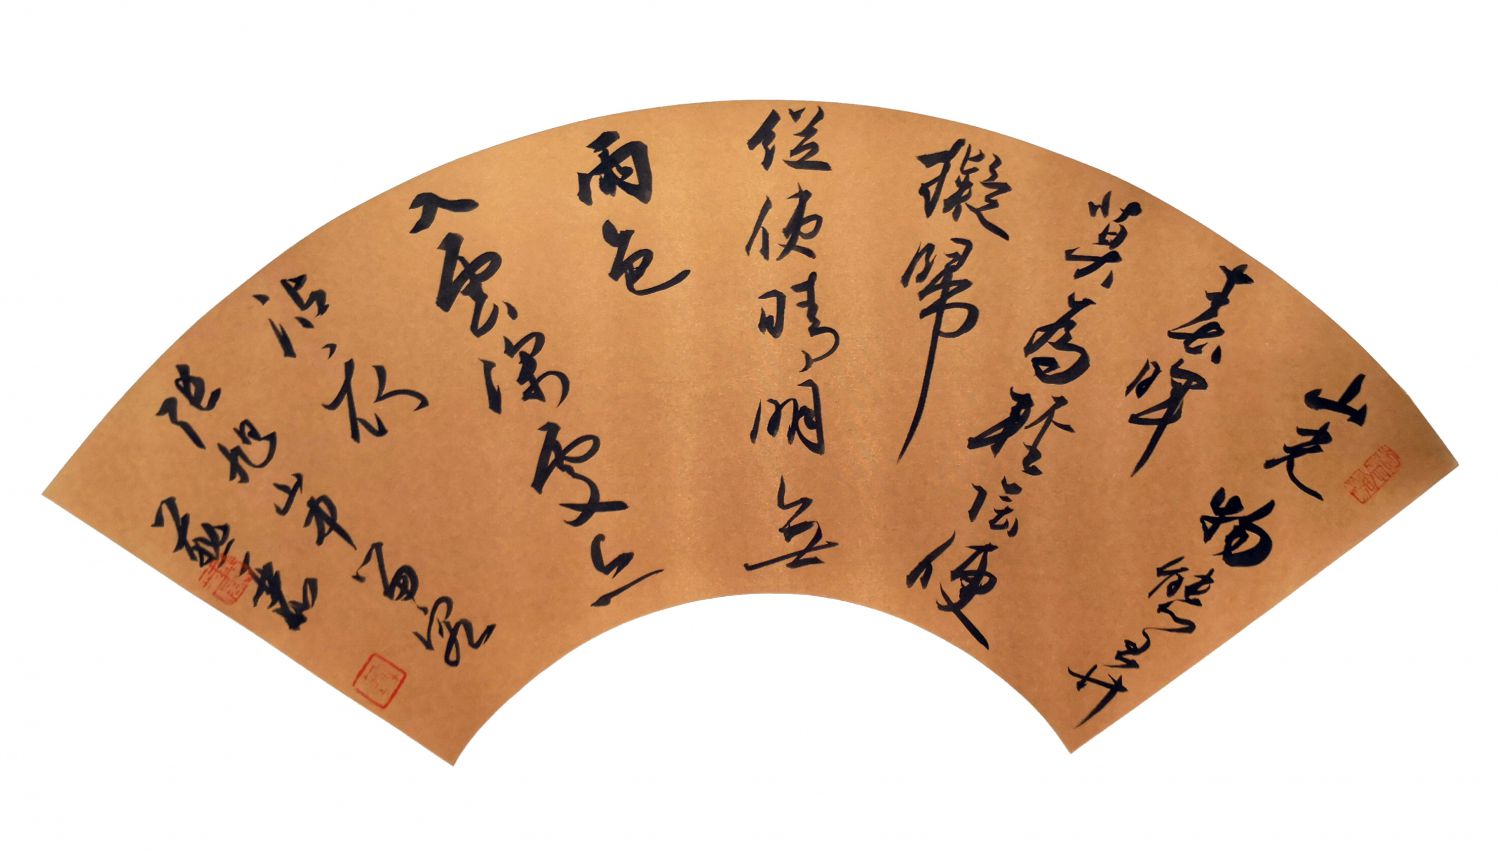 山光物態弄
春暉
莫為輕陰便
擬歸
縱使晴明無
雨色
入雲深處亦
沾衣
張旭山中留客
書